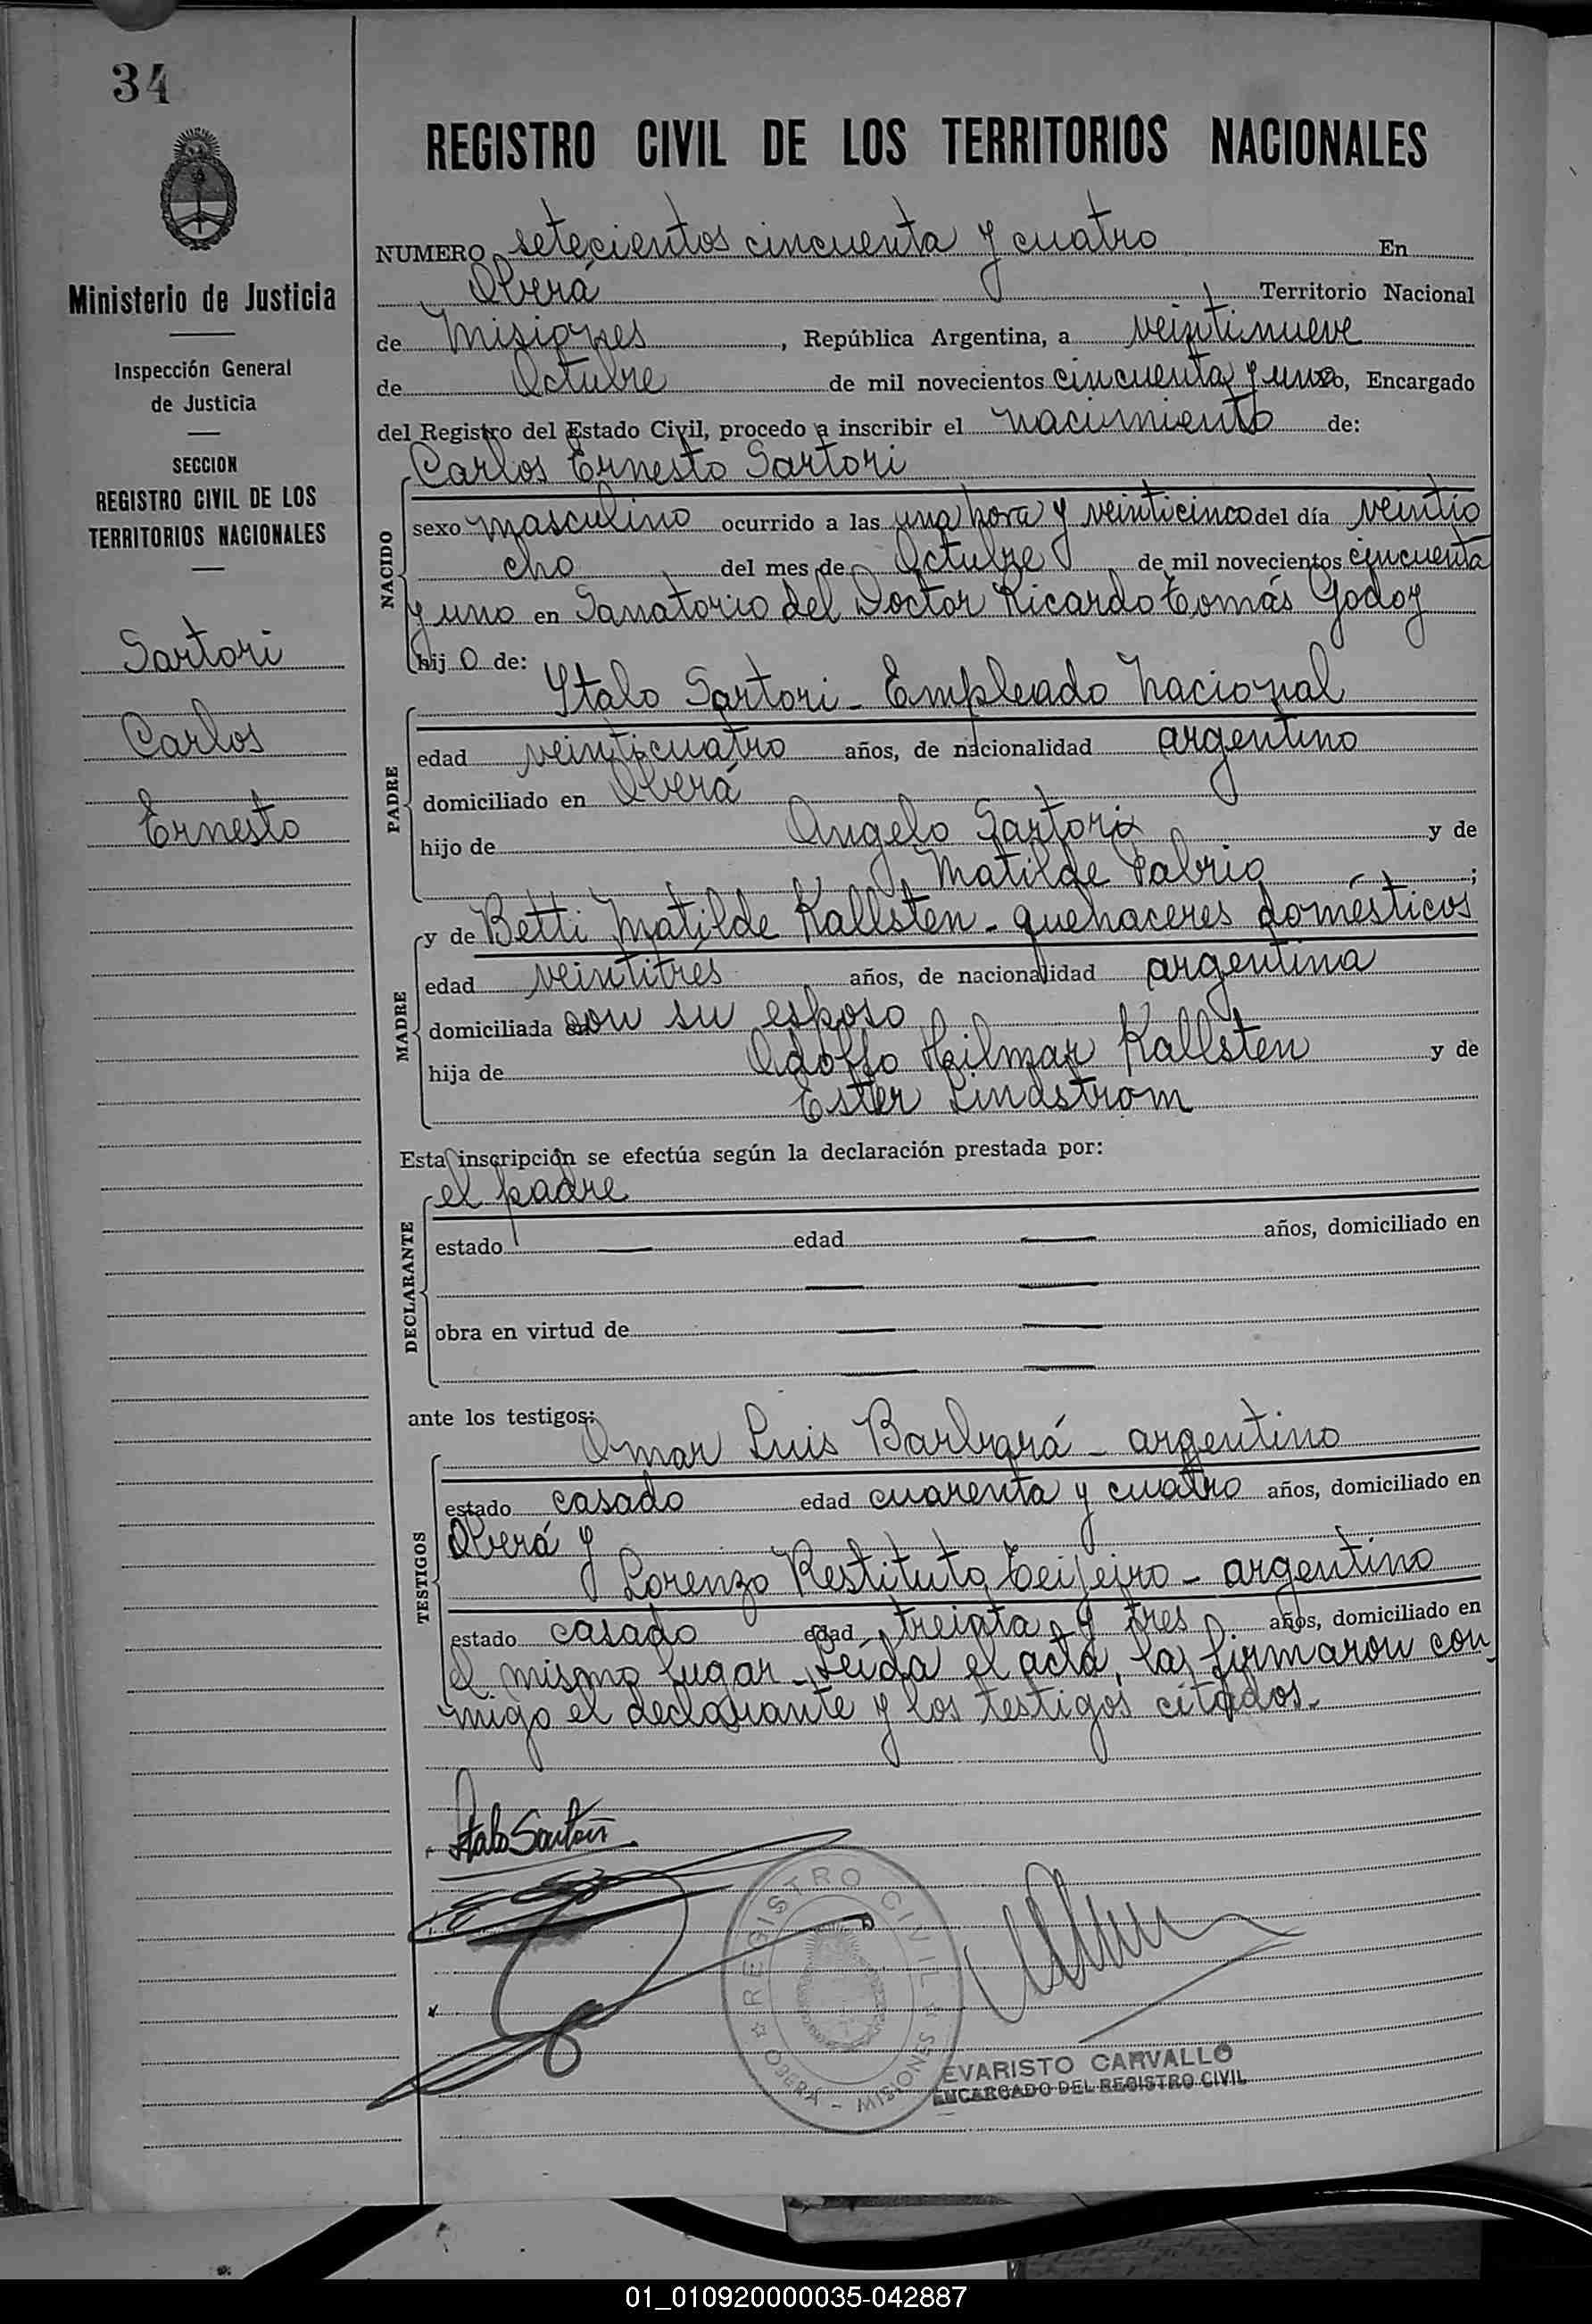 34
REGISTRO CIVIL DE LOS TERRITORIOS NACIONALES
Ministerio de Justicia
Inspección General
de Justicia
SECCION
REGISTRO CIVIL DE LOS
TERRITORIOS NACIONALES
Sartori
Carlos
Ernesto
NUMERO setecientos cincuenta y cuatro En
Oberá Territorio Nacional
de Misiones, República Argentina, a veintinueve
de Octubre de mil novecientos cincuenta y uno, Encargado
del Registro del Estado Civil, procedo a inscribir el nacimiento de:
NACIDO
Carlos Ernesto Sartori
sexo masculino ocurrido a las una hora y veinticinco del día veintio
cho del mes de Octubre de mil novecientos cincuenta
y uno en Sanatorio del Doctor Ricardo Tomás Godoy
hij o de:
PADRE
Italo Sartori - Empleado Nacional
edad veinticuatro años, de nacionalidad argentino
domiciliado en Oberá
hijo de Angelo Sartori y de
Matilde Fabrio;
MADRE
y de Betti Matilde Kallsten - quehaceres domésticos
edad veintitrés años, de nacionalidad argentina
domiciliada con su esposo
hija de Adolfo Hilmar Kallsten y de
Ester Lindstrom
Esta inscripción se efectúa según la declaración prestada por:
DECLARANTE
el padre
estado — edad — años, domiciliado en
— —
obra en virtud de — —
— —
ante los testigos:
TESTIGOS
Omar Luis Barbará - argentino
estado casado edad cuarenta y cuatro años, domiciliado en
Oberá y
Lorenzo Restituto Teijeiro - argentino
estado casado edad treinta y tres años, domiciliado en
el mismo lugar. Leída el acta, la firmaron con
migo el declarante y los testigos citados.
Italo Sartori
REGISTRO CIVIL
OBERÁ - MISIONES
EVARISTO CARVALLO
ENCARGADO DEL REGISTRO CIVIL
01_010920000035-042887